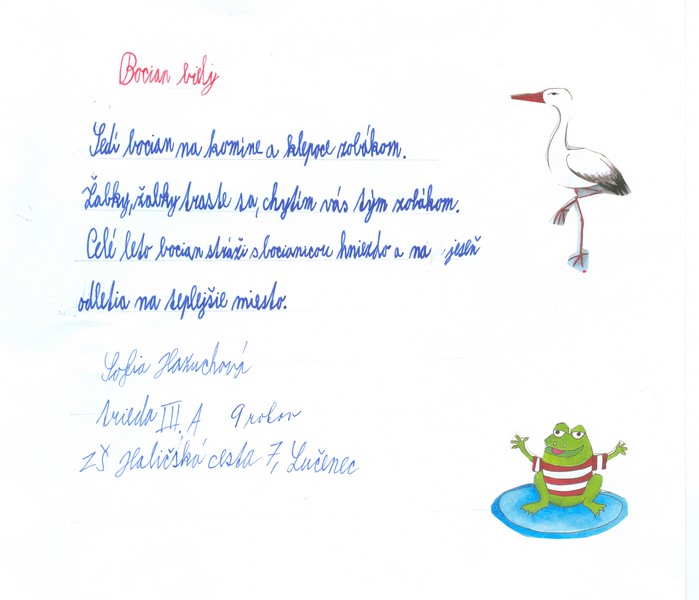 Bocian biely
Sedí bocian na komíne a klepoce zobákom.
Žabky, žabky traste sa, chytím vás tým zobákom.
Celé leto bocian stráži s bocianicou hniezdo a na jeseň
odletia na teplejšie miesto.
Sofia Hazuchová
trieda III. A 9 rokov
ZŠ Haličská cesta 7, Lučenec